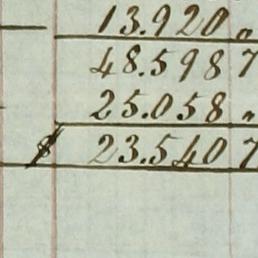 13.920 "
48.598 7
25.058 "
$ 23.540 7